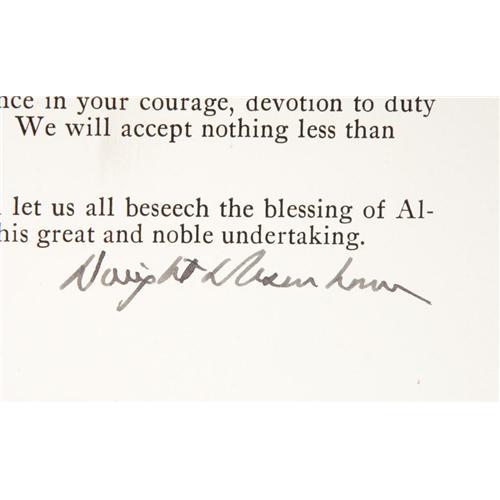 nce in your courage, devotion to duty
We will accept nothing less than
let us all beseech the blessing of Al-
his great and noble undertaking.
Dwight D Eisenhower